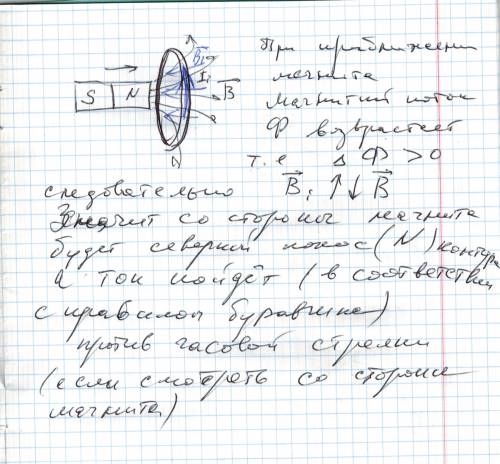 При приближении
магнита
S N B₁ I₁ B
магнитный поток
Ф возрастает
т.е Δ Ф > 0
следовательно B₁ ↑↓ B
Значит со стороны магнита
будет северный полюс (N) контура
и ток пойдёт (в соответствии
с правилом буравчика)
против часовой стрелки
(если смотреть со стороны
магнита)